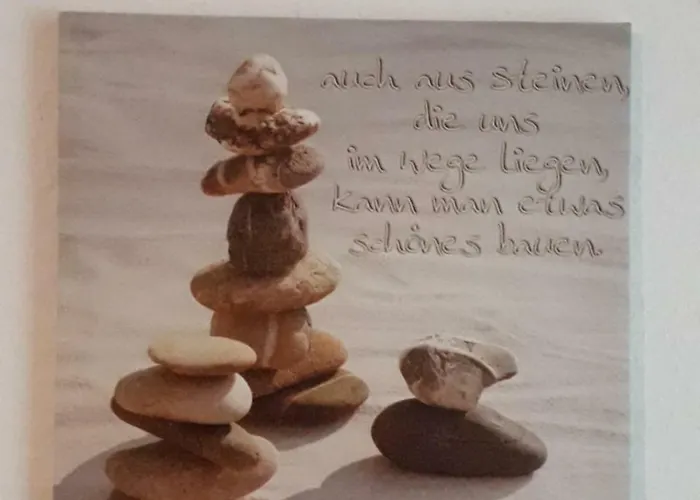 auch aus Steinen,
die uns
im Wege liegen,
kann man etwas
schönes bauen.